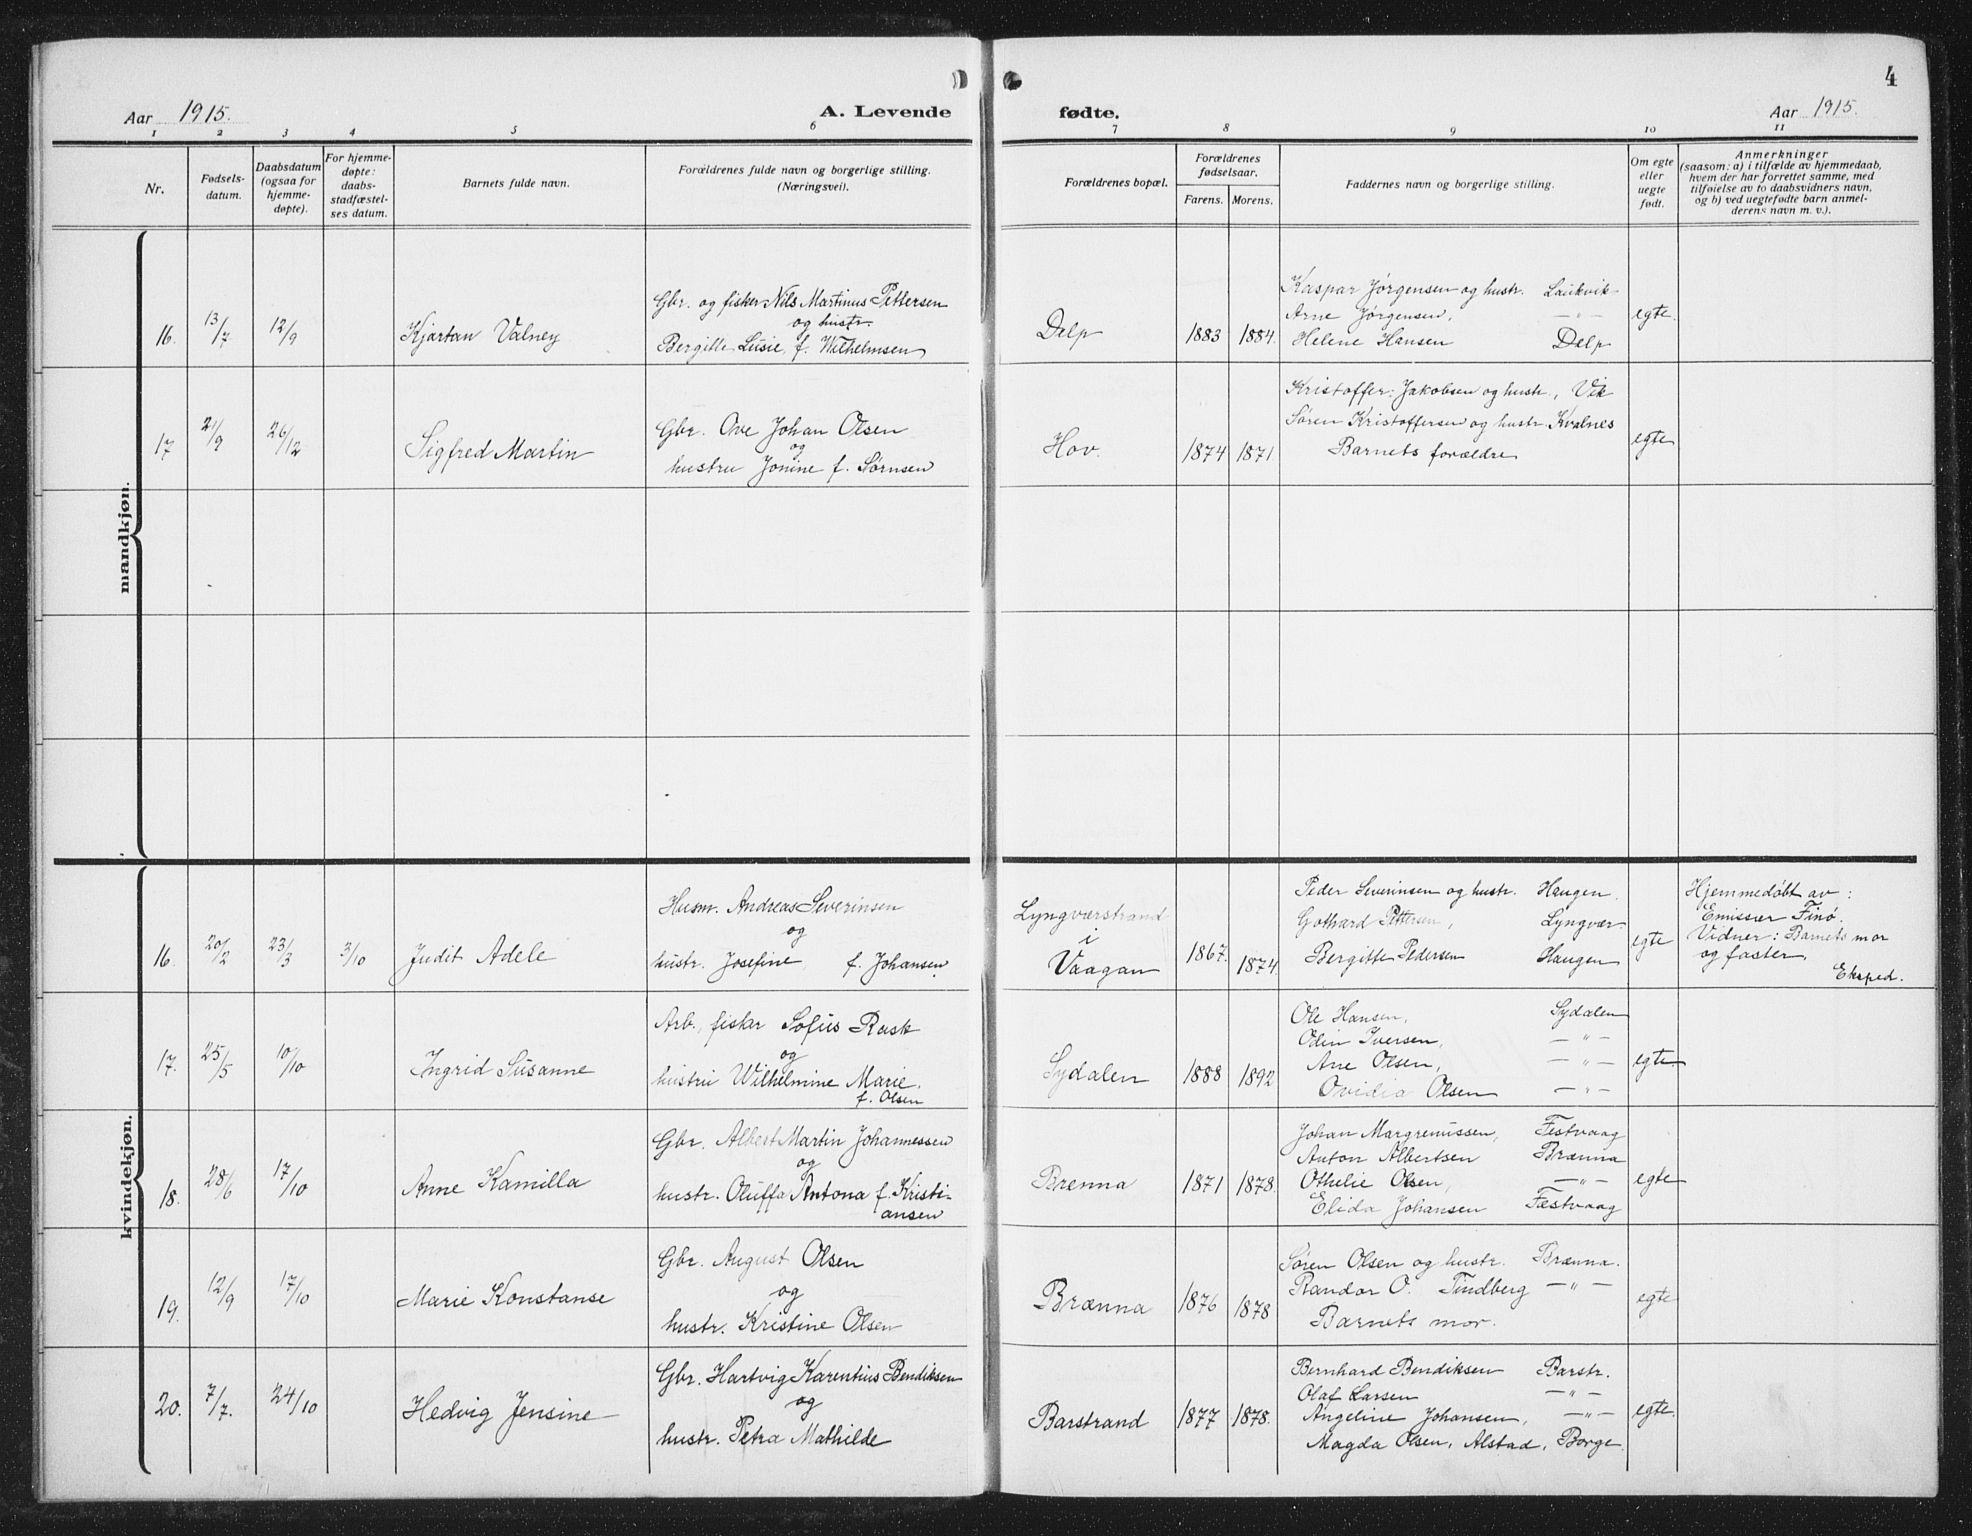 4
Aar 1915.
A. Levende fødte.
Aar 1915.
1 2 3 4 5 6 7 8 9 10 11
Nr.
Fødsels-
datum.
Daabsdatum
(ogsaa for
hjemme-
døpte).
For hjemme-
døpte:
daabs-
stadfæstel-
ses datum.
Barnets fulde navn.
Forældrenes fulde navn og borgerlige stilling.
(Næringsvei).
Forældrenes bopæl.
Forældrenes
fødselsaar.
Farens. Morens.
Faddernes navn og borgerlige stilling.
Om egte
eller
uegte
født.
Anmerkninger
(saasom: a) i tilfælde av hjemmedaab,
hvem der har forrettet samme, med
tilføielse av to daabsvidners navn,
og b) ved uegtefødte barn anmel-
derens navn m. v.).
mandkjøn.
16. 13/7 12/9 Kjartan Valney
Gbr. og fisker Nils Martinus Pettersen
og hustr.
Bergitte Lusie, f. Wilhelmsen
Delp 1883 1884.
Kaspar Jørgensen og hustr. Laukvik
Arne Jørgensen, — " —
Helene Hansen Delp
egte.
17 21/9 26/12 Sigfred Martin
Gbr. Ove Johan Olsen
og
hustru Jonine f. Sørnsen
Hov. 1874 1871
Kristoffer Jakobsen og hustr, Vik
Søren Kristoffersen og hustr. Kvalnes
Barnets forældre
egte
kvindekjøn.
16. 20/2 23/3 3/10 Judit Adele
Husm. Andreas Severinsen
og
hustr. Josefine, f. Johansen
Lyngværstrand
i
Vaagan
1867. 1874.
Peder Severinsen og hustr. Haugen.
Gothard Pettersen, Lyngvær
Bergitte Pedersen Haugen
egte
Hjemmedøbt av:
Emissær Finø.
Vidner: Barnets mor
og faster.
Eksped.
17. 25/5 10/10 Ingrid Susanne
Arb., fisker Sofus Rask
og
hustru Wilhelmine Marie.
f. Olsen
Sydalen 1888 1892
Ole Hansen, Sydalen
Odin Iversen, — " —
Ane Olsen, — " —
Ovidia Olsen — " —
egte.
18. 28/6 17/10 Anne Kamilla
Gbr. Albert Martin Johannessen
og
hustr. Oluffa Antona f. Kristi-
ansen
Brenna 1871 1878.
Johan Margrenussen, Festvaag
Anton Albertsen Brænna
Othelie Olsen, — " —
Elida Johansen Fæstvaag
egte
19. 12/9 17/10 Marie Konstanse
Gbr. August Olsen
og
hustr. Kristine Olsen
Brænna 1876 1878
Søren Olsen og hustr. Brænna.
Randor O. Tindberg — " —
Barnets mor.
egte
20. 7/7. 24/10 Hedvig Jensine
Gbr. Hartvig Karentius Bendiksen
og
hustr. Petra Mathilde
Barstrand 1877 1878.
Bernhard Bendiksen Barstr.
Olaf Larsen — " —
Angeline Johansen, — " —
Magda Olsen, Alstad, Borge
egte.